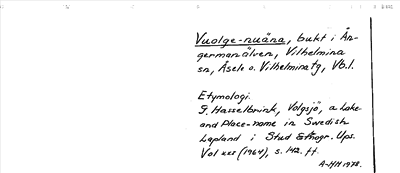 Vuolge-nuäna, bukt i Ån-
germanälven, Vilhelmina
sn, Åsele o. Vilhelmina tg, Vb.l.
Etymologi.
G. Hasselbrink, Volgsjö, a Lake-
and Place-name in Swedish
Lapland i Stud Ethnogr. Ups.
Vol xxi (1964), s. 142. ff.
A-HH 1972.